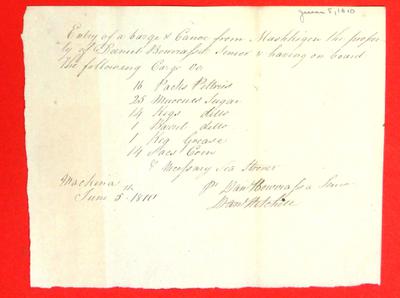 June 5, 1810
Entry of a barge & Canoe from Mushkigon the proper
ty of Daniel Bourassa Senior & having on board
The following Cargo Vo
16 Packs Peltries
25 Mococks Sugar
14 Kegs ditto
1 Barrel ditto
1 Keg Grease
14 Sacs Corn
& Necessary Sea Stores
Mackina
June 5th 1810
Danl Bourassa Senr